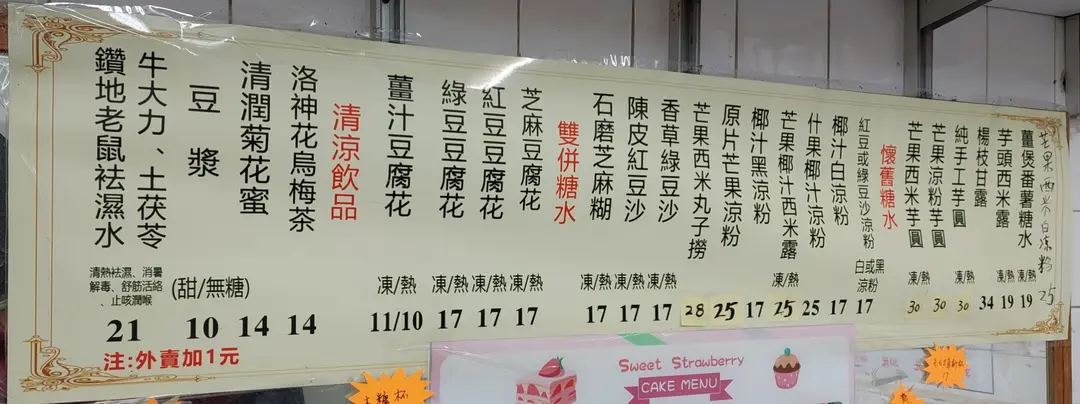 芒果西米白涼粉 25
薑煲番薯糖水 凍/熱 19
芋頭西米露 凍/熱 19
楊枝甘露 34
純手工芋圓 凍/熱 30
芒果涼粉芋圓 30
芒果西米芋圓 凍/熱 30
懷舊糖水
紅豆或綠豆沙涼粉 白或黑涼粉 17
椰汁白涼粉 17
什果椰汁涼粉 25
芒果椰汁西米露 凍/熱 25
椰汁黑涼粉 17
原片芒果涼粉 25
芒果西米丸子撈 28
香草綠豆沙 凍/熱 17
陳皮紅豆沙 凍/熱 17
石磨芝麻糊 凍/熱 17
雙併糖水
芝麻豆腐花 凍/熱 17
紅豆豆腐花 凍/熱 17
綠豆豆腐花 凍/熱 17
薑汁豆腐花 凍/熱 11/10
清涼飲品
洛神花烏梅茶 14
清潤菊花蜜 14
豆漿 (甜/無糖) 10
牛大力、土茯苓
鑽地老鼠祛濕水
清熱祛濕、消暑
解毒、舒筋活絡
、止咳潤喉
21
注:外賣加1元
Sweet Strawberry
CAKE MENU